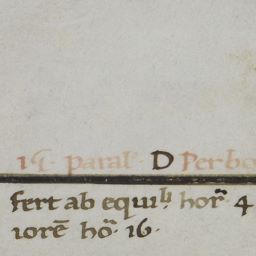 paral̄. D Perbo
fert ab equil̄. hor̃. 4
iorē hõ. 16.